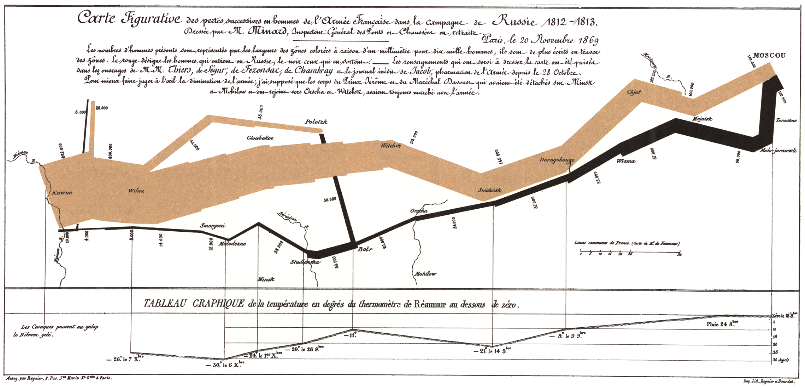 Carte Figurative des pertes successives en hommes de l'Armée Française dans la campagne de Russie 1812–1813.
Dressée par M. Minard, Inspecteur Général des Ponts et Chaussées en retraite.
Paris, le 20 Novembre 1869
Les nombres d'hommes présents sont représentés par les largeurs des zones colorées à raison d'un millimètre pour dix mille hommes; ils sont de plus écrits en travers
des zones. Le rouge désigne les hommes qui entrent en Russie, le noir ceux qui en sortent. — Les renseignements qui ont servi à dresser la carte ont été puisés
dans les ouvrages de M.M. Thiers, de Ségur, de Fezensac, de Chambray et le journal inédit de Jacob, pharmacien de l'Armée depuis le 28 Octobre.
Pour mieux faire juger à l'œil la diminution de l'armée, j'ai supposé que les corps du Prince Jérôme et du Maréchal Davoust, qui avaient été détachés sur Minsk
et Mohilow et ont rejoint vers Orscha et Witebsk, avaient toujours marché avec l'armée.
MOSCOU
Polotzk
Gloubokoe
Witebsk
Chjat
Mojaisk
Tarantino
Malo-jarosewli
Dorogobouge
Wizma
Smolensk
Kowno
Wilna
Orscha
Smorgoni
Molodexno
Bobr
Studienska
Minsk
Mohilow
Lieues communes de France
TABLEAU GRAPHIQUE de la température en degrés du thermomètre de Réaumur au dessous de zéro.
Les Cosaques passent au galop
le Niémen gelé.
Pluie 24 8.bre
— 9.° le 9 9.bre
— 21.° le 14 9.bre
— 11.°
— 20.° le 28 9.bre
— 24.° le 1.er X.bre
— 30.° le 6 X.bre
— 26.° le 7 X.bre
Autog. par Regnier, 8. Pas. S.te Marie S.t G.ain à Paris.
Imp. Lith. Regnier et Dourdet.